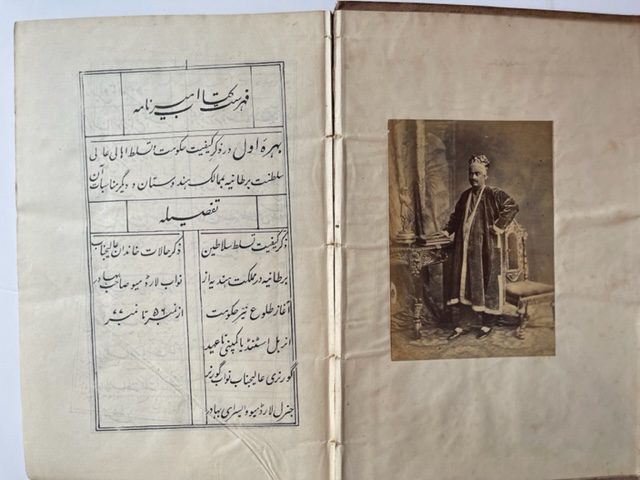 فهرست کتاب امیرنامه
بهرهٔ اول در ذکر کیفیت حکومت و تسلط اهالی عالی
سلطنت برطانیه بممالک هندوستان و دیگر مناسبات آن
تفصیله
ذکر کیفیت تسلط سلاطین
برطانیه در مملکت هندیه از
آغاز طلوع نیر حکومت
انریبل اسٹنڈیا کمپنی تا عهد
گورنری عالیجناب نواب گورنر
جنرل لارڈ میو ویسرای بهادر
ذکر حالات خاندان عالیجناب
نواب لارڈ میو صاحب بهادر
از نمبر ۵۶ تا نمبر ۷۷